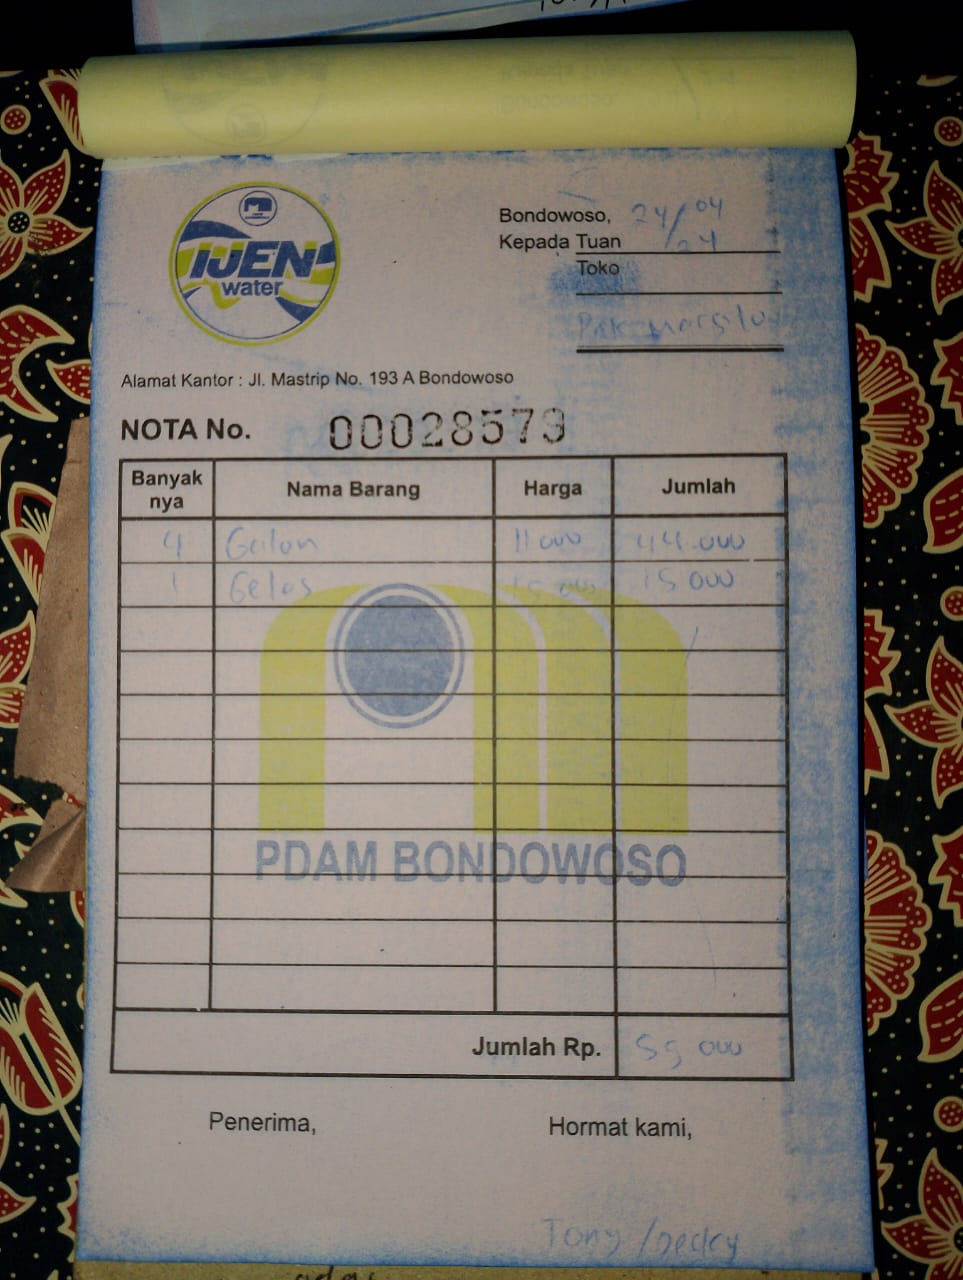 IJEN
water
Bondowoso, 24/04
/24
Kepada Tuan
Toko
Pak
Alamat Kantor : Jl. Mastrip No. 193 A Bondowoso
NOTA No. 00028579
Banyak nya Nama Barang Harga Jumlah
4 Galon 11 000 44.000
1 Gelas 15 000 15 000
PDAM BONDOWOSO
Jumlah Rp. 59 000
Penerima, Hormat kami,
Tony /